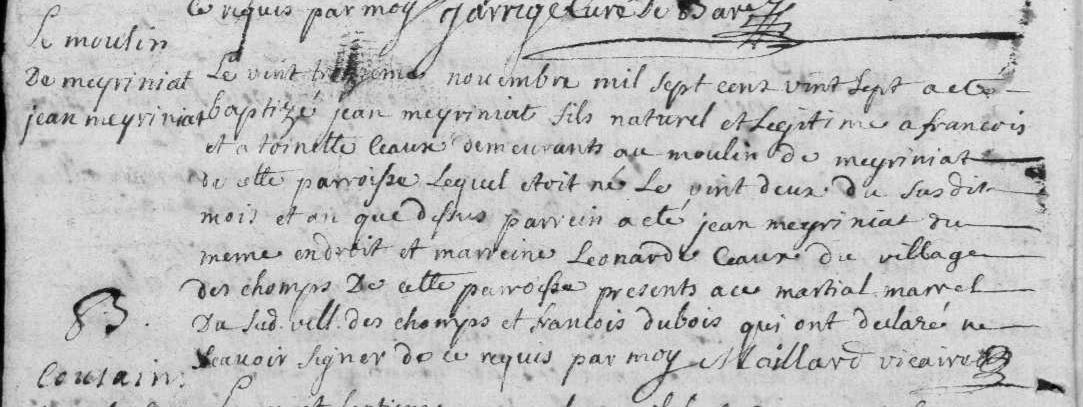 ce requis par moy Garrige curé de Bar
Le moulin
De meyriniat
jean meyriniat
Le vint troizieme novembre mil sept cens vint sept a eté
baptizé jean meyriniat fils naturel et Legitime a francois
et a toinette Ceaux demeurants au moulin de meyriniat
de cette parroisse Lequel etoit né Le vint deux du susdit
mois et an que dessus parrein a eté jean meyriniat du
meme endroit et marreine Leonarde Ceaux du village
des chomps De cette parroisse presents a ce martial marrel
Du sud. vill. des chomps et francois dubois qui ont declaré ne
scavoir signer de ce requis par moy Maillard vicaire
B.